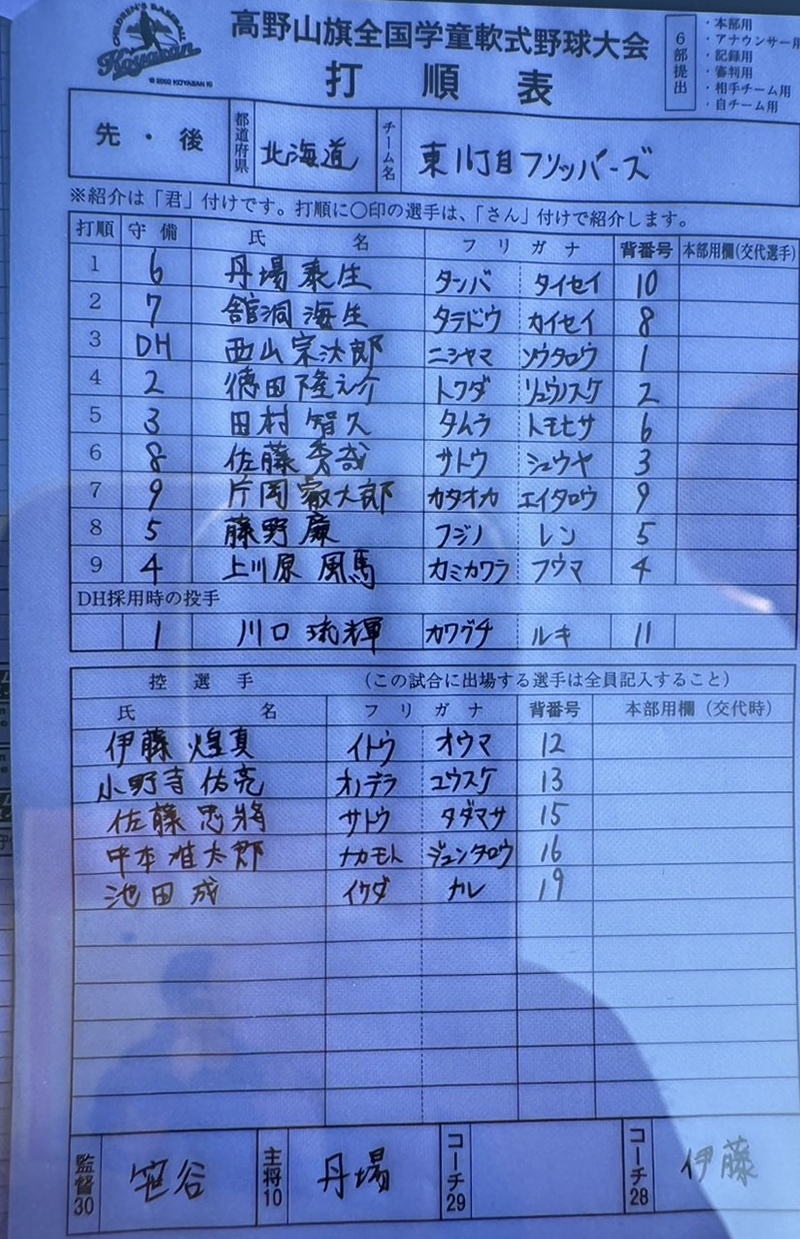 CHILDREN'S BASEBALL
Koyasan
高野山旗全国学童軟式野球大会
打順表
6部提出
・本部用
・アナウンサー用
・記録用
・審判用
・相手チーム用
・自チーム用
先・後 都道府県 北海道 チーム名 東16丁目フリッパーズ
※紹介は「君」付けです。打順に〇印の選手は、「さん」付けで紹介します。
打順 守備 氏名 フリガナ 背番号 本部用欄(交代選手)
1 6 丹場泰生 タンバ タイセイ 10
2 7 舘洞海生 タテドウ カイセイ 8
3 DH 西山宗汰郎 ニシヤマ ソウタロウ 1
4 2 徳田隆之介 トクダ リュウノスケ 2
5 3 田村智久 タムラ トモヒサ 6
6 8 佐藤秀哉 サトウ シュウヤ 3
7 9 片岡叡太郎 カタオカ エイタロウ 9
8 5 藤野廉 フジノ レン 5
9 4 上川原風馬 カミカワラ フウマ 4
DH採用時の投手
1 川口琉輝 カワグチ ルキ 11
控選手 (この試合に出場する選手は全員記入すること)
氏名 フリガナ 背番号 本部用欄(交代時)
伊藤煌真 イトウ オウマ 12
小野寺佑亮 オノデラ ユウスケ 13
佐藤忠将 サトウ タダマサ 15
中本准太郎 ナカモト ジュンタロウ 16
池田成 イケダ ナル 19
監督30 笹谷 主将10 丹場 コーチ29 コーチ28 伊藤